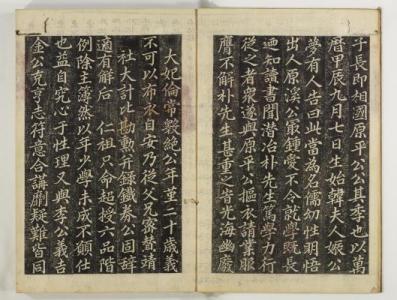 子長即相國原平公公其季也以萬
曆甲辰九月七日生始韓夫人娠公
夢有人告曰此當為名儒幼性明悟
出人原溪公最鍾愛不令就學既長
乃知讀書聞潛冶朴先生篤學力行
從之者衆遂與原平公摳衣請業服
膺不解朴先生甚重之昏光海幽廢
大妃倫常斁絶公年堇二十歲義
不可以布衣自安乃從父兄密贊靖
社大計比勘勲并錄鐵券公固辭
適有解后仁祖只命超授六品階
例除主簿然以年少學未成不願仕
也益自究心于性理又與李公義吉
金公克亨志符意合講劘疑難皆同